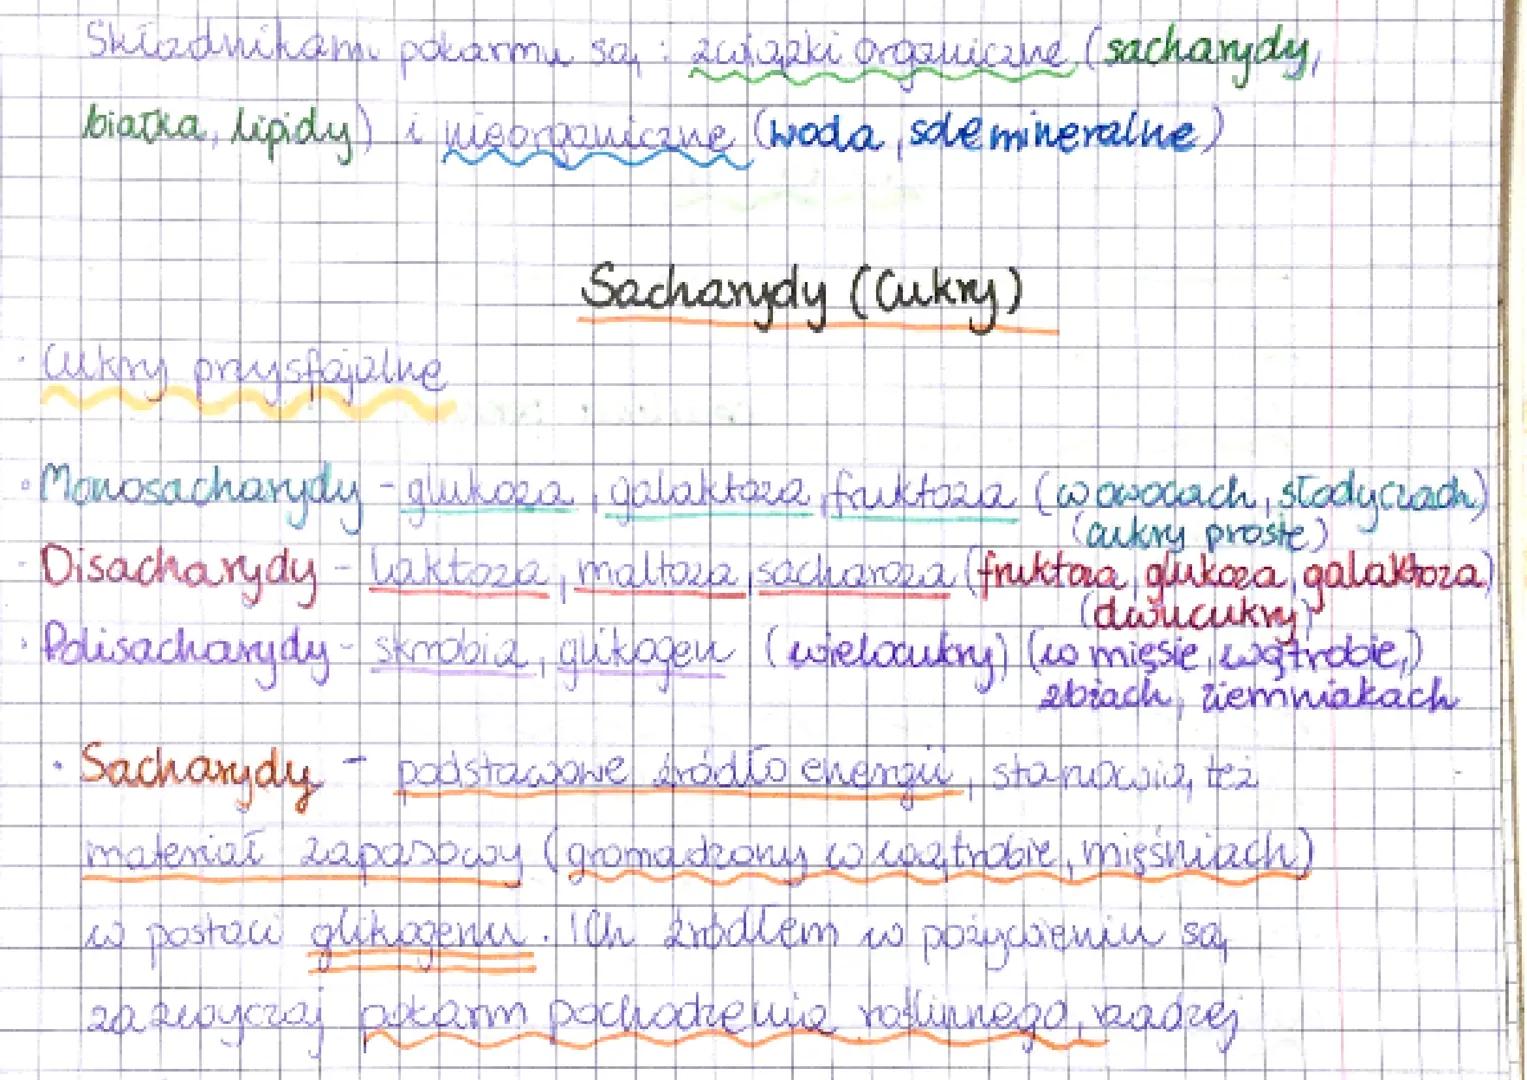 Składnikami pokarmu są : związki organiczne (sacharydy,
białka, lipidy) i nieorganiczne (woda, sole mineralne)
Sacharydy (Cukry)
· Cukry przyswajalne
· Monosacharydy - glukoza, galaktoza, fruktoza (w owocach, słodyczach)
(cukry proste)
· Disacharydy - laktoza, maltoza, sacharoza (fruktoza, glukoza, galaktoza)
(dwucukry)
· Polisacharydy - skrobia, glikogen (wielocukry) (w mięsie, wątrobie,)
zbiach, ziemniakach
· Sacharydy - podstawowe źródło energii, stanowią też
materiał zapasowy (gromadzony w wątrobie, mięśniach)
w postaci glikogenu. Ich źródłem w pożywieniu są
zazwyczaj pokarm pochodzenia roślinnego, rzadziej